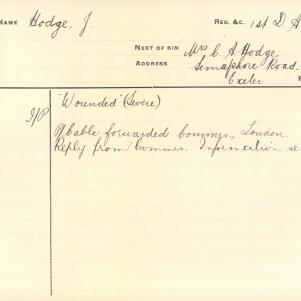 NAME Hodge, J. REG. &C. 1st D A
NEXT OF KIN Mrs C. A Hodge,
ADDRESS Semaphore Road.
Exeter
"Wounded" (Severe)
Cable forwarded Commrs, London
Reply from Commrs. Information se